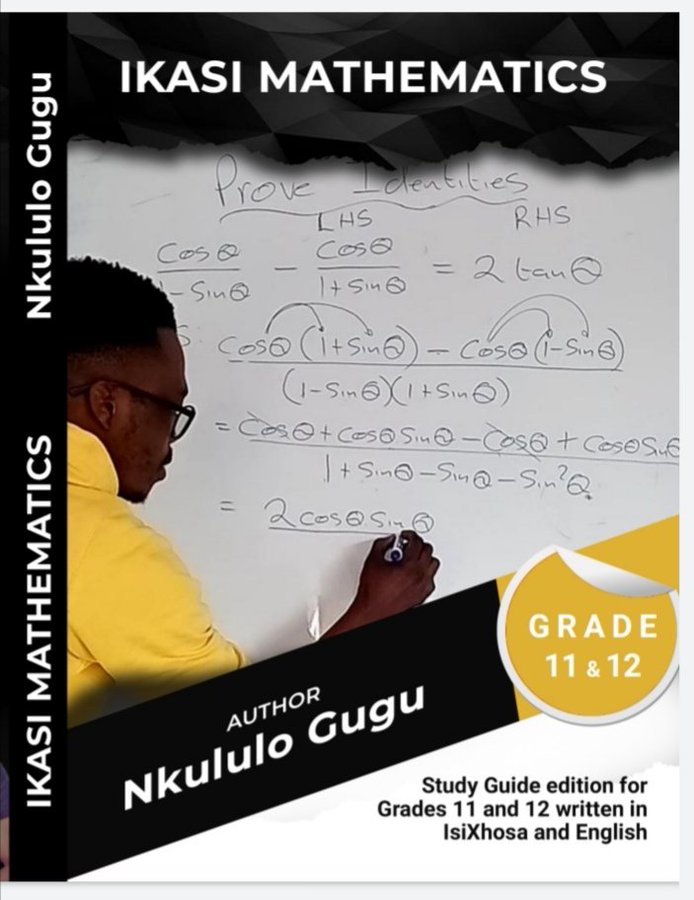 Nkululo Gugu
IKASI MATHEMATICS
IKASI MATHEMATICS
Prove Identities
LHS RHS
Cosθ / 1-Sinθ - Cosθ / 1+Sinθ = 2 tanθ
Cosθ(1+Sinθ) - Cosθ(1-Sinθ)
(1-Sinθ)(1+Sinθ)
= Cosθ + CosθSinθ - Cosθ + CosθSinθ
1+Sinθ-Sinθ-Sin²θ
= 2CosθSinθ
GRADE
11 & 12
AUTHOR
Nkululo Gugu
Study Guide edition for
Grades 11 and 12 written in
IsiXhosa and English